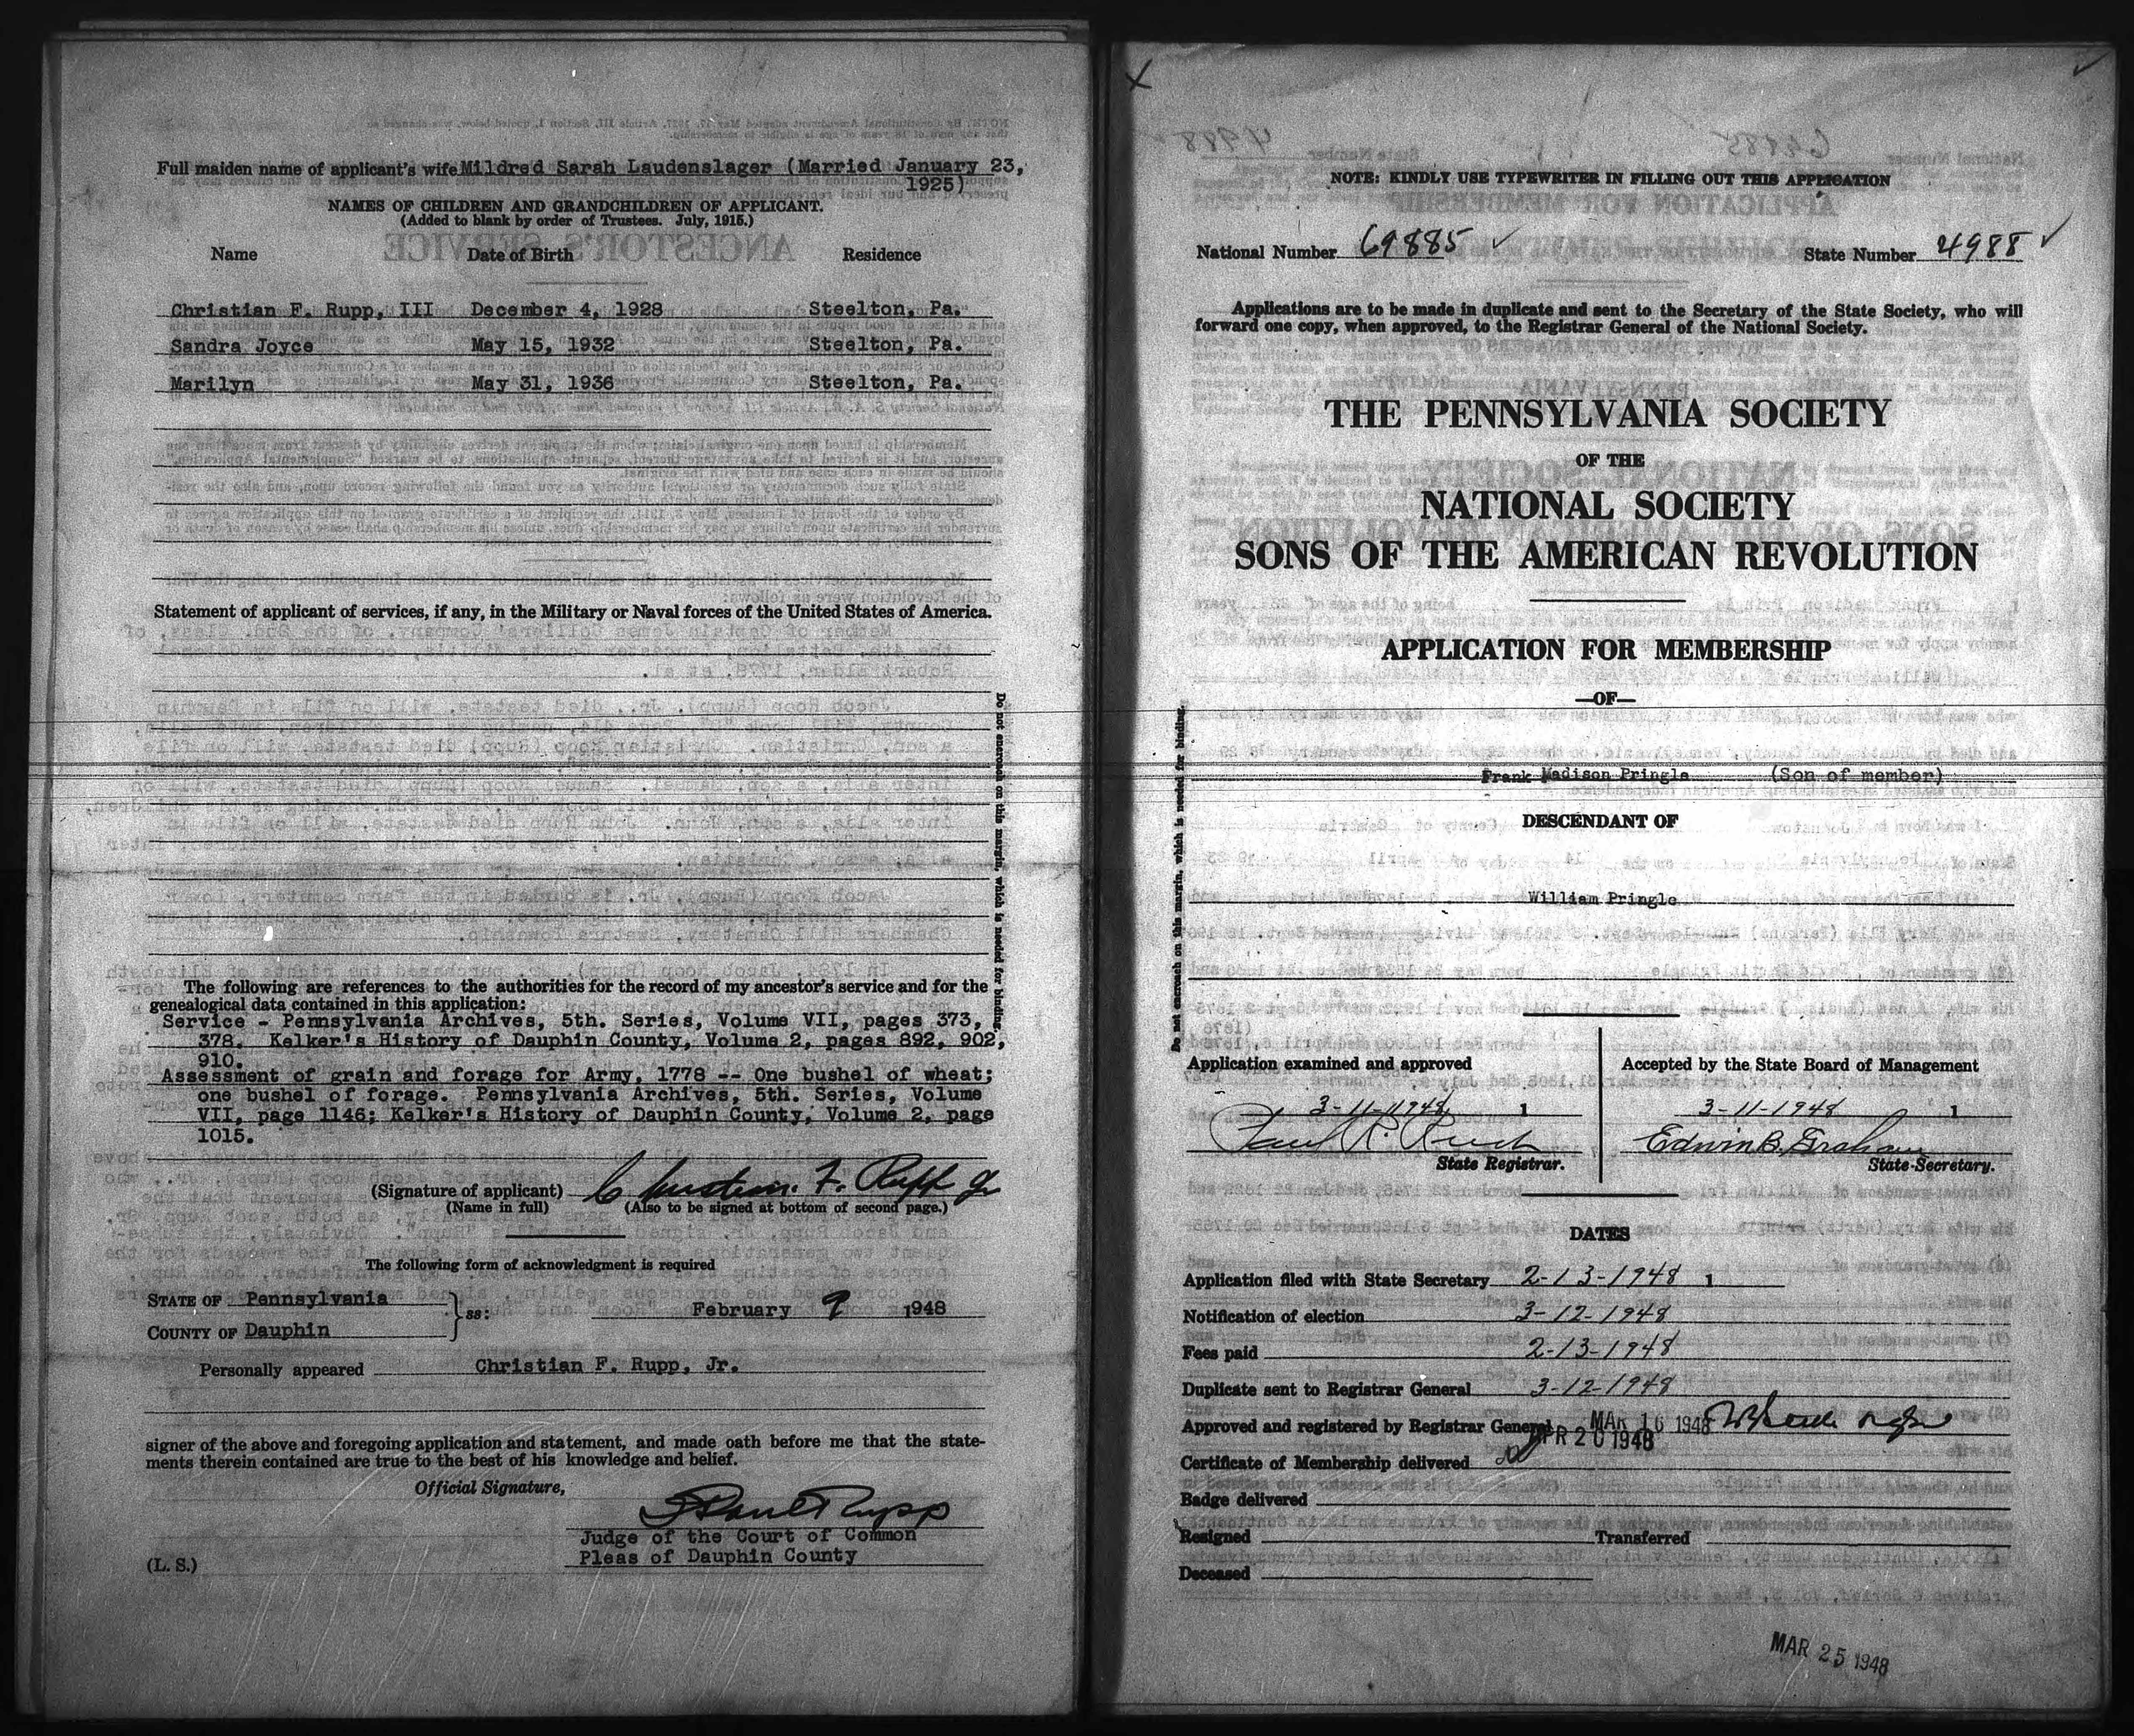 Full maiden name of applicant's wife Mildred Sarah Laudenslager (Married January 23,
1925)
NAMES OF CHILDREN AND GRANDCHILDREN OF APPLICANT.
(Added to blank by order of Trustees. July, 1915.)
Name Date of Birth Residence
Christian F. Rupp, III December 4, 1928 Steelton, Pa.
Sandra Joyce May 15, 1932 Steelton, Pa.
Marilyn May 31, 1936 Steelton, Pa.
Statement of applicant of services, if any, in the Military or Naval forces of the United States of America.
Do not encroach on this margin, which is needed for binding.
The following are references to the authorities for the record of my ancestor's service and for the
genealogical data contained in this application:
Service - Pennsylvania Archives, 5th. Series, Volume VII, pages 373,
378. Kelker's History of Dauphin County, Volume 2, pages 892, 902,
910.
Assessment of grain and forage for Army, 1778 -- One bushel of wheat;
one bushel of forage. Pennsylvania Archives, 5th. Series, Volume
VII, page 1146; Kelker's History of Dauphin County, Volume 2, page
1015.
(Signature of applicant) Christian F. Rupp Jr
(Name in full) (Also to be signed at bottom of second page.)
The following form of acknowledgment is required
STATE OF Pennsylvania
ss: February 9 1948
COUNTY OF Dauphin
Personally appeared Christian F. Rupp, Jr.
signer of the above and foregoing application and statement, and made oath before me that the state-
ments therein contained are true to the best of his knowledge and belief.
Official Signature,
Paul Rupp
Judge of the Court of Common
Pleas of Dauphin County
(L. S.)
X
NOTE: KINDLY USE TYPEWRITER IN FILLING OUT THIS APPLICATION
National Number 69885 State Number 4988
Applications are to be made in duplicate and sent to the Secretary of the State Society, who will
forward one copy, when approved, to the Registrar General of the National Society.
THE PENNSYLVANIA SOCIETY
OF THE
NATIONAL SOCIETY
SONS OF THE AMERICAN REVOLUTION
APPLICATION FOR MEMBERSHIP
—OF—
Frank Madison Pringle (Son of member)
DESCENDANT OF
William Pringle
Do not encroach on this margin, which is needed for binding.
Application examined and approved Accepted by the State Board of Management
3-11-1948 1 3-11-1948 1
Paul R. Edwin B. Graham
State Registrar. State Secretary.
DATES
Application filed with State Secretary 2-13-1948 1
Notification of election 3-12-1948
Fees paid 2-13-1948
Duplicate sent to Registrar General 3-12-1948
Approved and registered by Registrar General MAR 16 1948
APR 20 1948
Certificate of Membership delivered
Badge delivered
Resigned Transferred
Deceased
MAR 25 1948